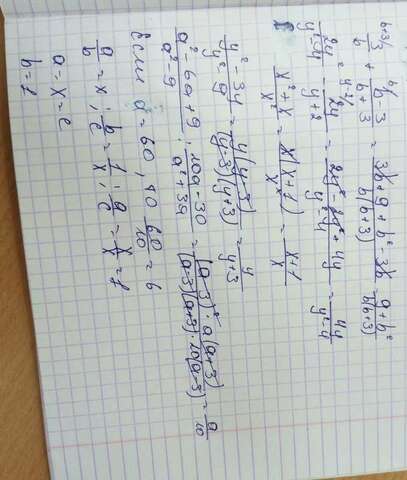 b+3/ 3/b + b/ b-3/b+3 = 3b+9+b²-3b/b(b+3) = 9+b²/b(b+3)
2y²/y²-4 - y-2/ 2y/y+2 = 2y²-2y²+4y/y²-4 = 4y/y²-4
x²+x/x² = x(x+1)/x² = x+1/x
y²-3y/y²-9 = y(y-3)/(y-3)(y+3) = y/y+3
a²-6a+9/a²-9 : 10a-30/a²+3a = (a-3)²·a(a+3)/(a-3)(a+3)·10(a-3) = a/10
если a=60, то 60/10=6
a/b = x; b/c = 1/x; a/c = x/x = 1
a = x = c
b = 1